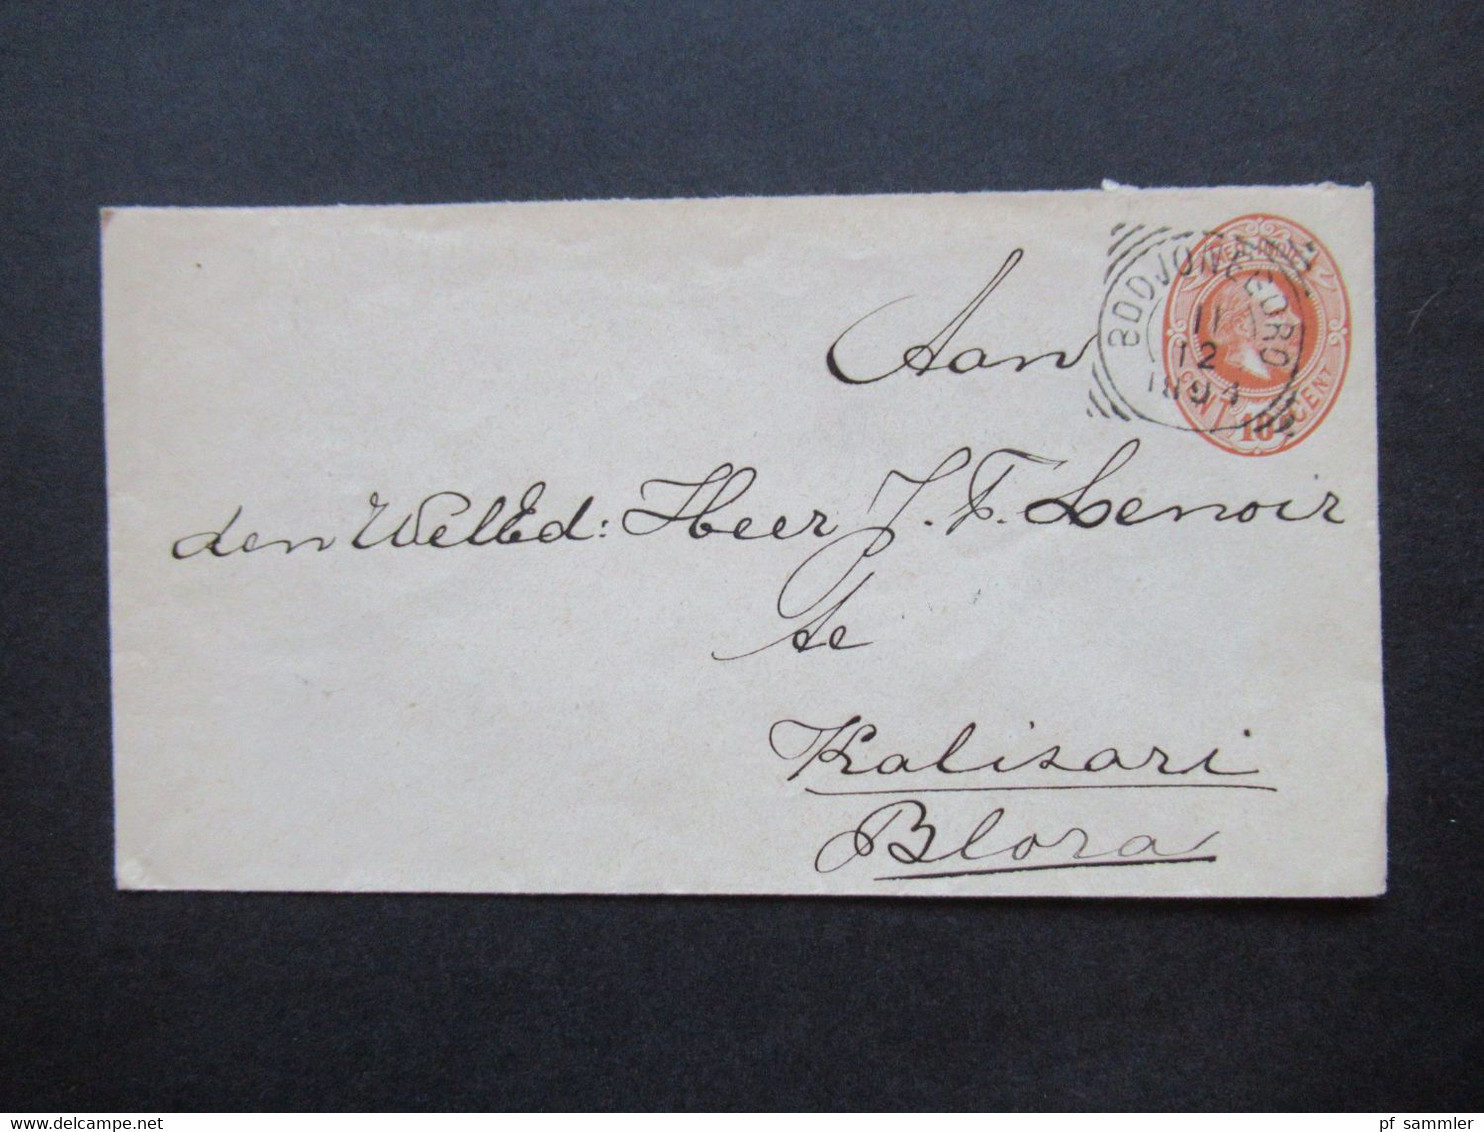 NED. INDIE
BODJONEGORO
11
12
CENT 10 CENT
Aan
den WelEd: Heer J. F. Lenoir
te
Kalisari
Blora
pf_sammler